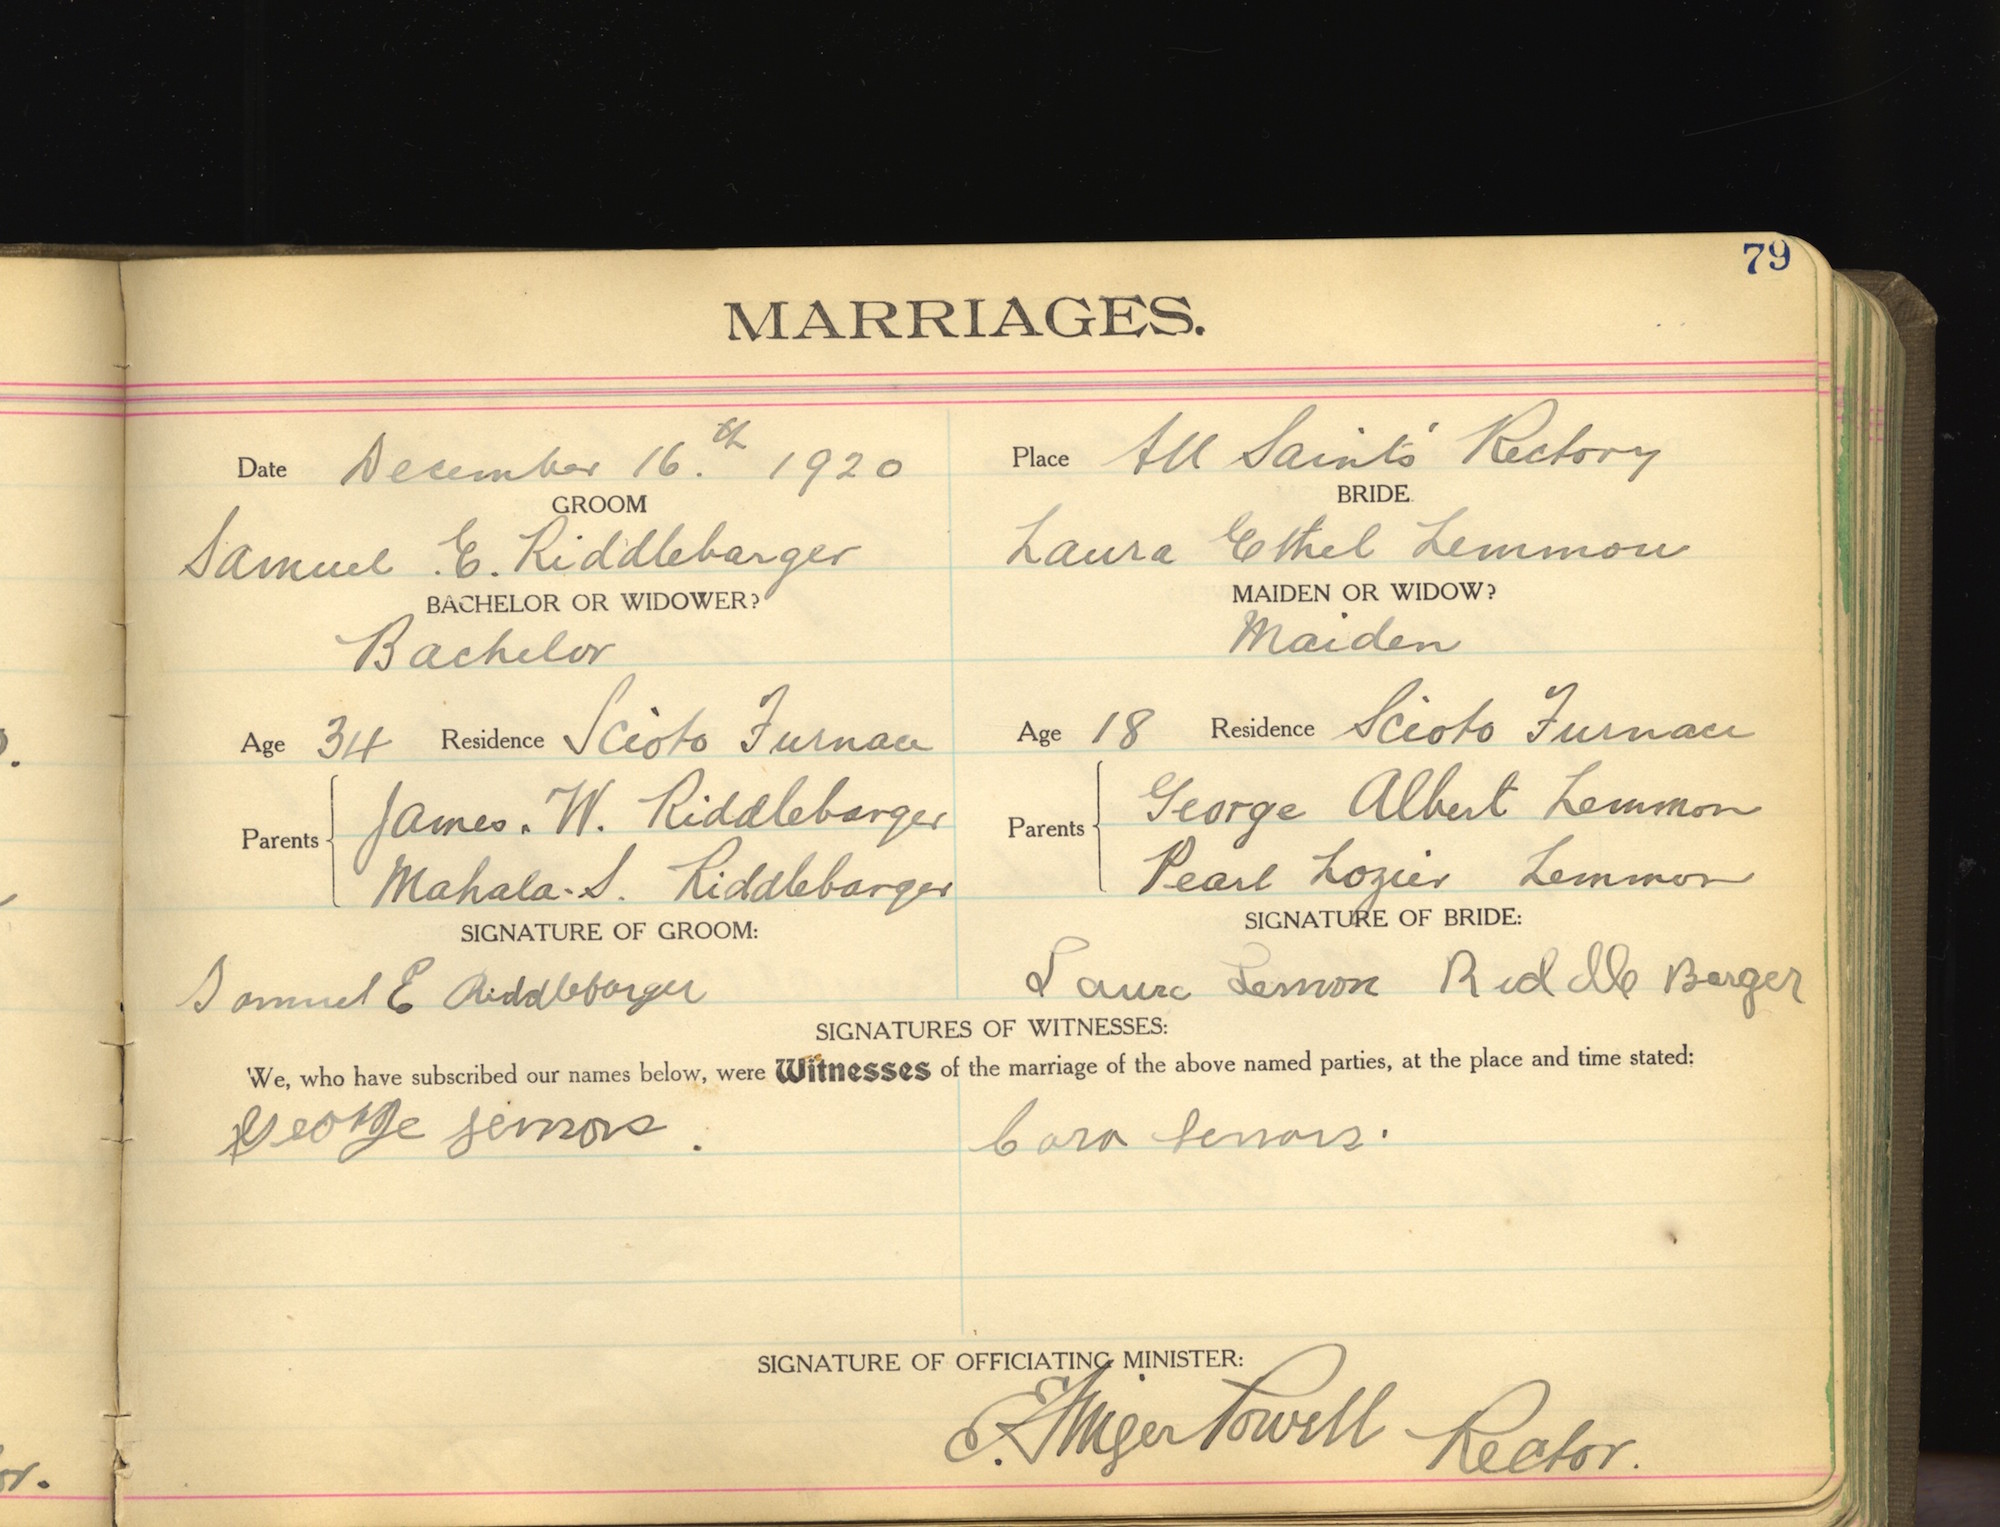 79
MARRIAGES.
Date December 16.th 1920 Place All Saints' Rectory
GROOM BRIDE
Samuel E. Riddlebarger Laura Ethel Lemmon
BACHELOR OR WIDOWER? MAIDEN OR WIDOW?
Bachelor Maiden
Age 34 Residence Scioto Furnace Age 18 Residence Scioto Furnace
Parents James. W. Riddlebarger Parents George Albert Lemmon
Mahala. S. Riddlebarger Pearl Lozier Lemmon
SIGNATURE OF GROOM: SIGNATURE OF BRIDE:
Samuel E Riddlebarger Laura Lemon Riddle Barger
SIGNATURES OF WITNESSES:
We, who have subscribed our names below, were Witnesses of the marriage of the above named parties, at the place and time stated:
George Lemons. Cora Lemons.
SIGNATURE OF OFFICIATING MINISTER:
E. Ainger Powell Rector.
or.